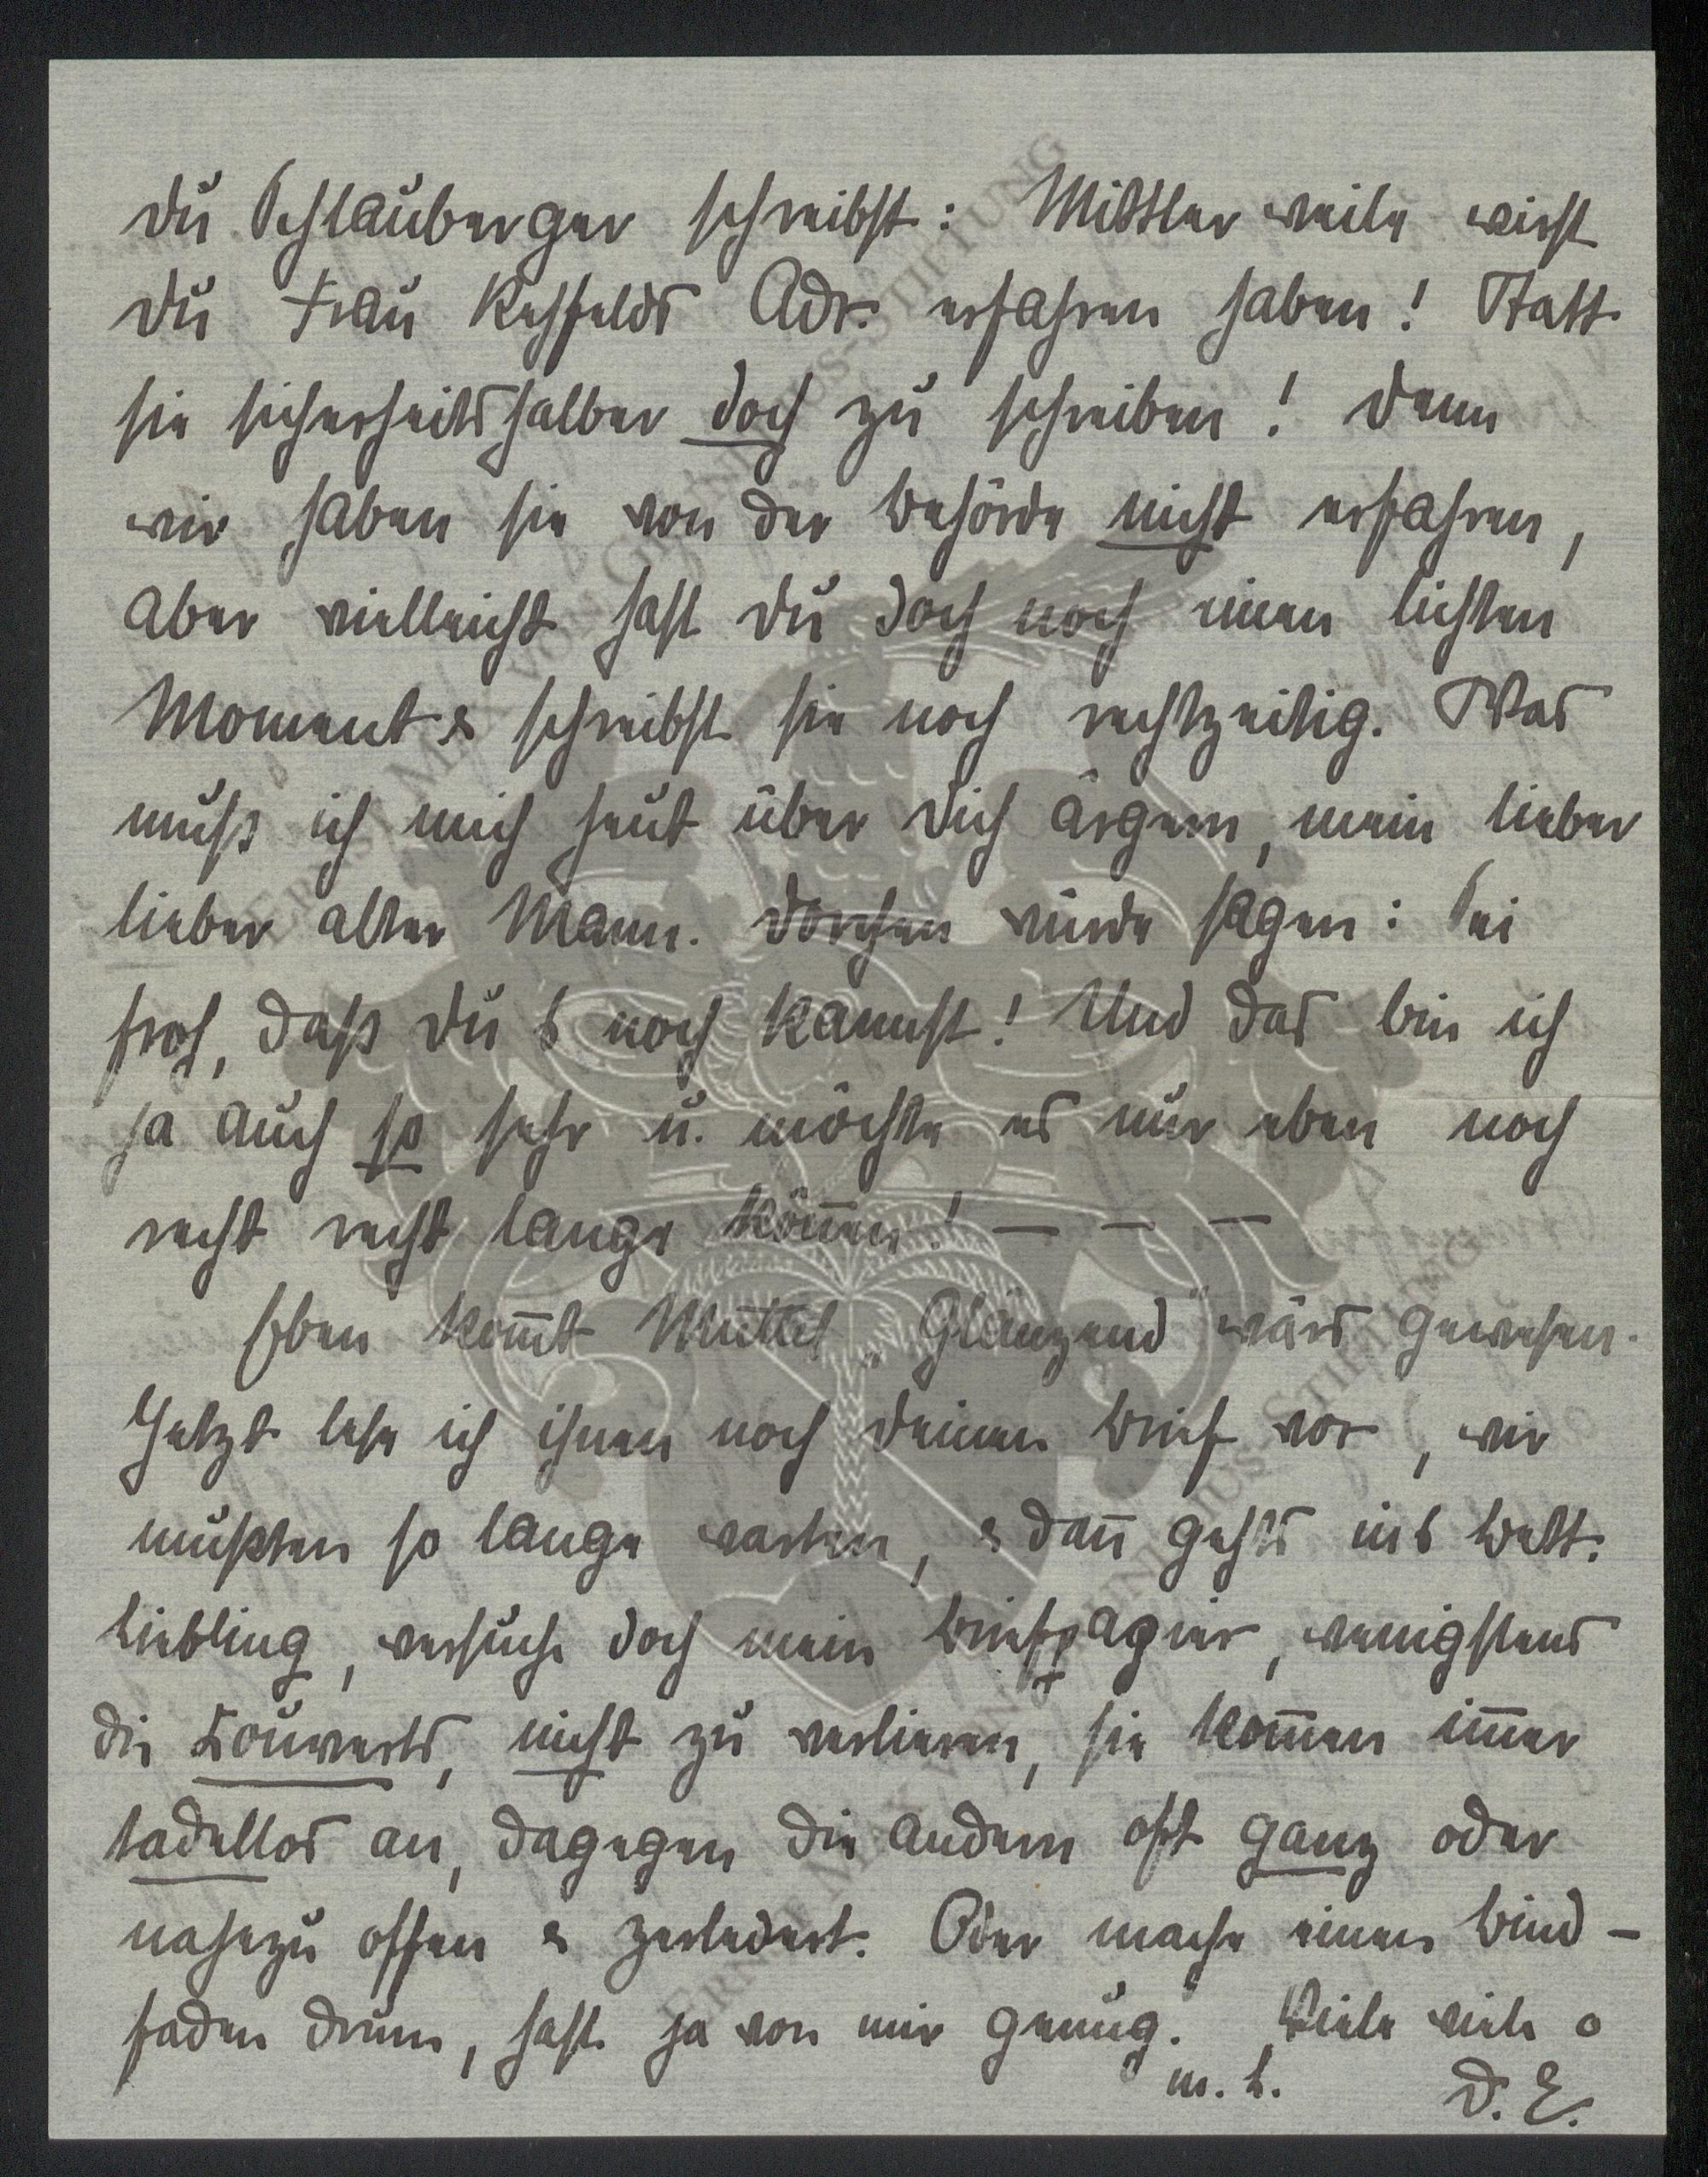 Du Schlauberger schreibst: Mittlerweile wirst
Du Frau Rehfelds Adr. erfahren haben! Statt
sie sicherheitshalber doch zu schreiben! Denn
wir haben sie von der Behörde nicht erfahren,
aber vielleicht hast Du doch noch einen lichten
Moment & schreibst sie noch rechtzeitig. Was
muß ich mich heut über Dich ärgern, mein lieber
lieber alter Mann. Dorchen würde sagen: Sei
froh, daß Du's noch kannst! Und das bin ich
ja auch so sehr u. möchte es nur eben noch
recht recht lange können! — — —
Eben kommt Muttel „Glänzend" wärs gewesen.
Jetzt lese ich ihnen noch Deinen Brief vor, wir
mußten so lange warten, & dann gehts ins Bett.
Liebling, versuche doch mein Briefpapier, wenigstens
die Kouverts, nicht zu verlieren, sie kommen immer
tadellos an, dagegen die andern oft ganz oder
nahezu offen & zerledert. Oder mache einen Bind-
faden drum, hast ja von mir genug. Viele viele o
m. L. D. E.
ERNST MAX VON GRUNELIUS-STIFTUNG
ERNST MAX VON GRUNELIUS-STIFTUNG